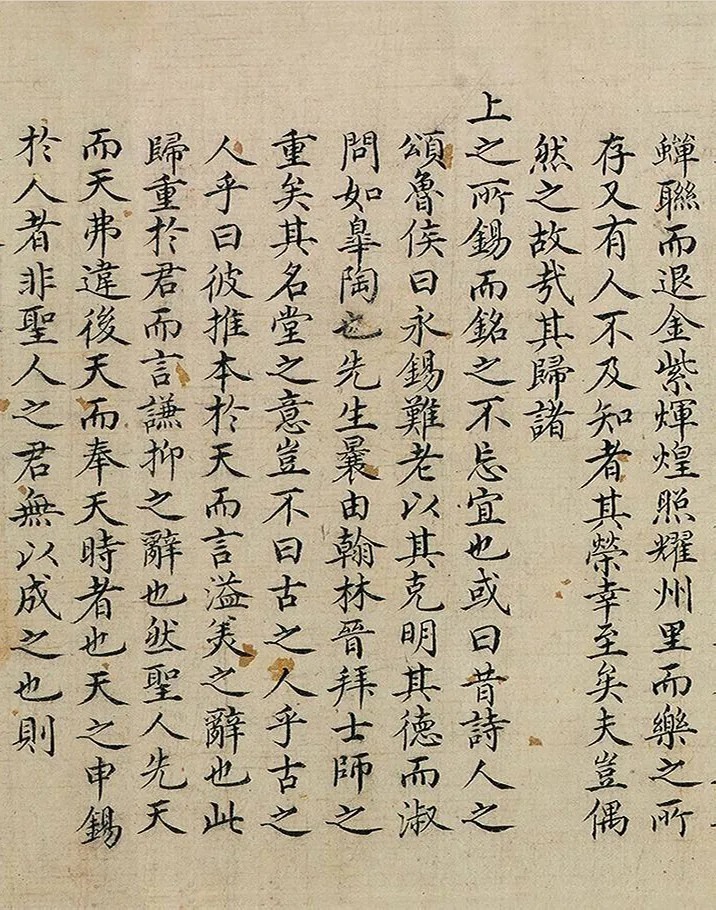 蟬聮而退金紫煇煌照耀州里而樂之所
存又有人不及知者其榮幸至矣夫豈偶
然之故哉其歸諸
上之所錫而銘之不忘宜也或曰昔詩人之
頌魯侯曰永錫難老以其克明其德而淑
問如皐陶也先生曩由翰林晉拜士師之
重矣其名堂之意豈不曰古之人乎古之
人乎曰彼推本於天而言溢美之辭也此
歸重於君而言謙抑之辭也然聖人先天
而天弗違後天而奉天時者也天之申錫
於人者非聖人之君無以成之也則